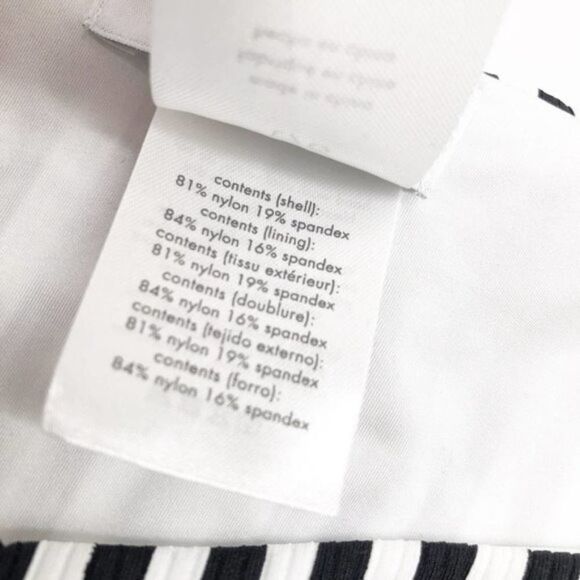 contents (shell):
81% nylon 19% spandex
contents (lining):
84% nylon 16% spandex
contents (tissu extérieur):
81% nylon 19% spandex
contents (doublure):
84% nylon 16% spandex
contents (tejido externo):
81% nylon 19% spandex
contents (forro):
84% nylon 16% spandex